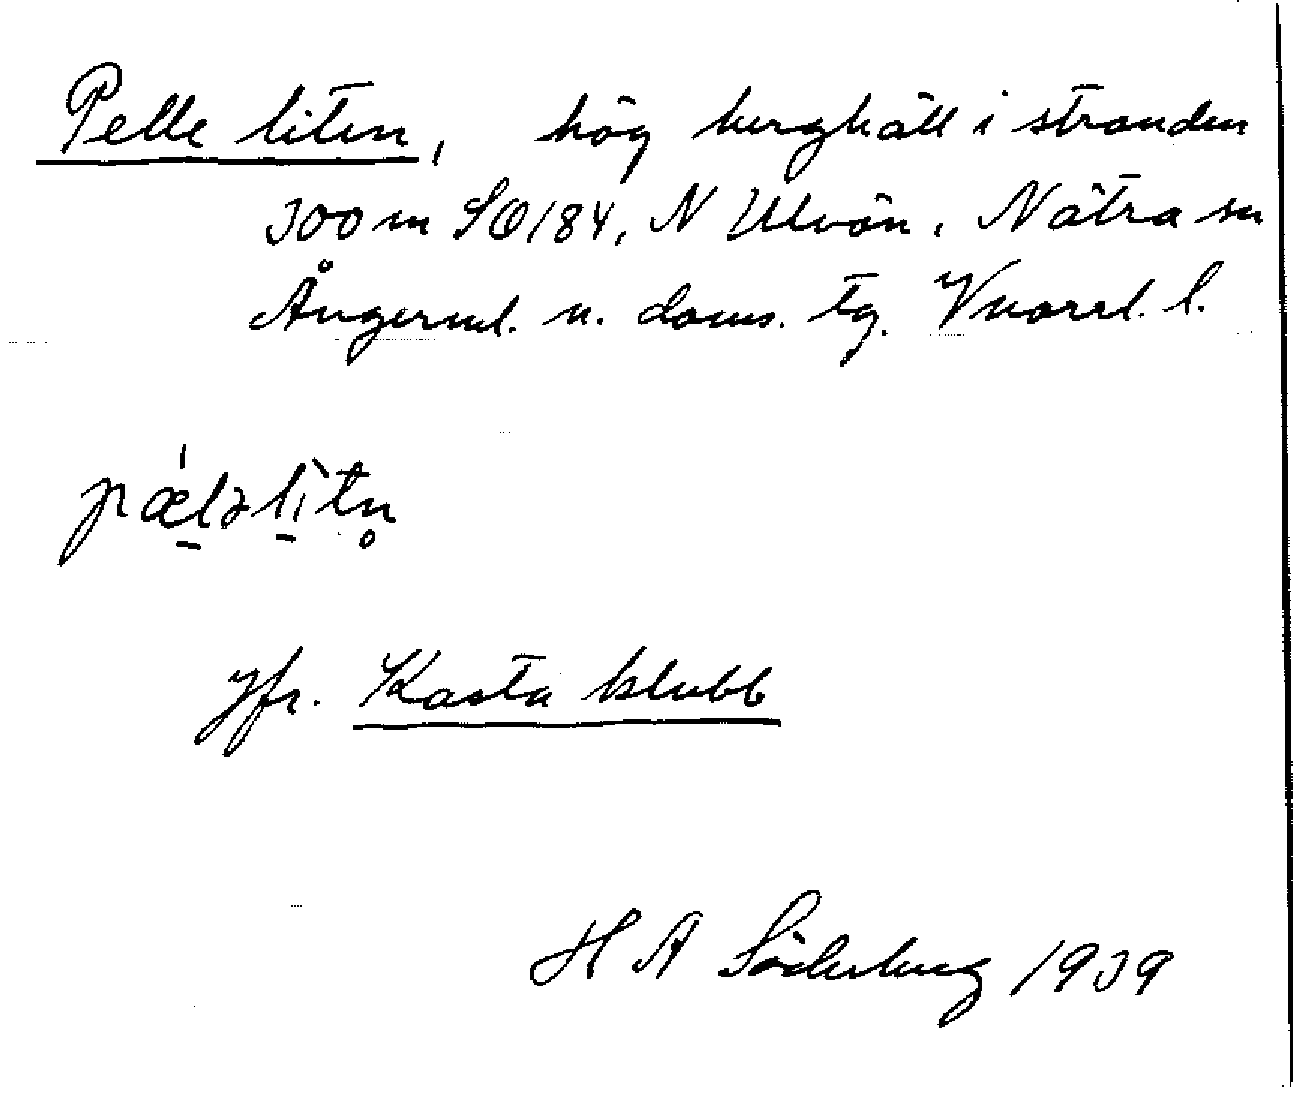 Pelle liten, hög berghäll i stranden
300 m SO 184, N Ulvön, Nätra sn
Ångerml. n. doms. tg. Vnorrl. l.
pǽ̠lə lì̠tn̥
Jfr. Kasta klubb
H A Söderberg 1939